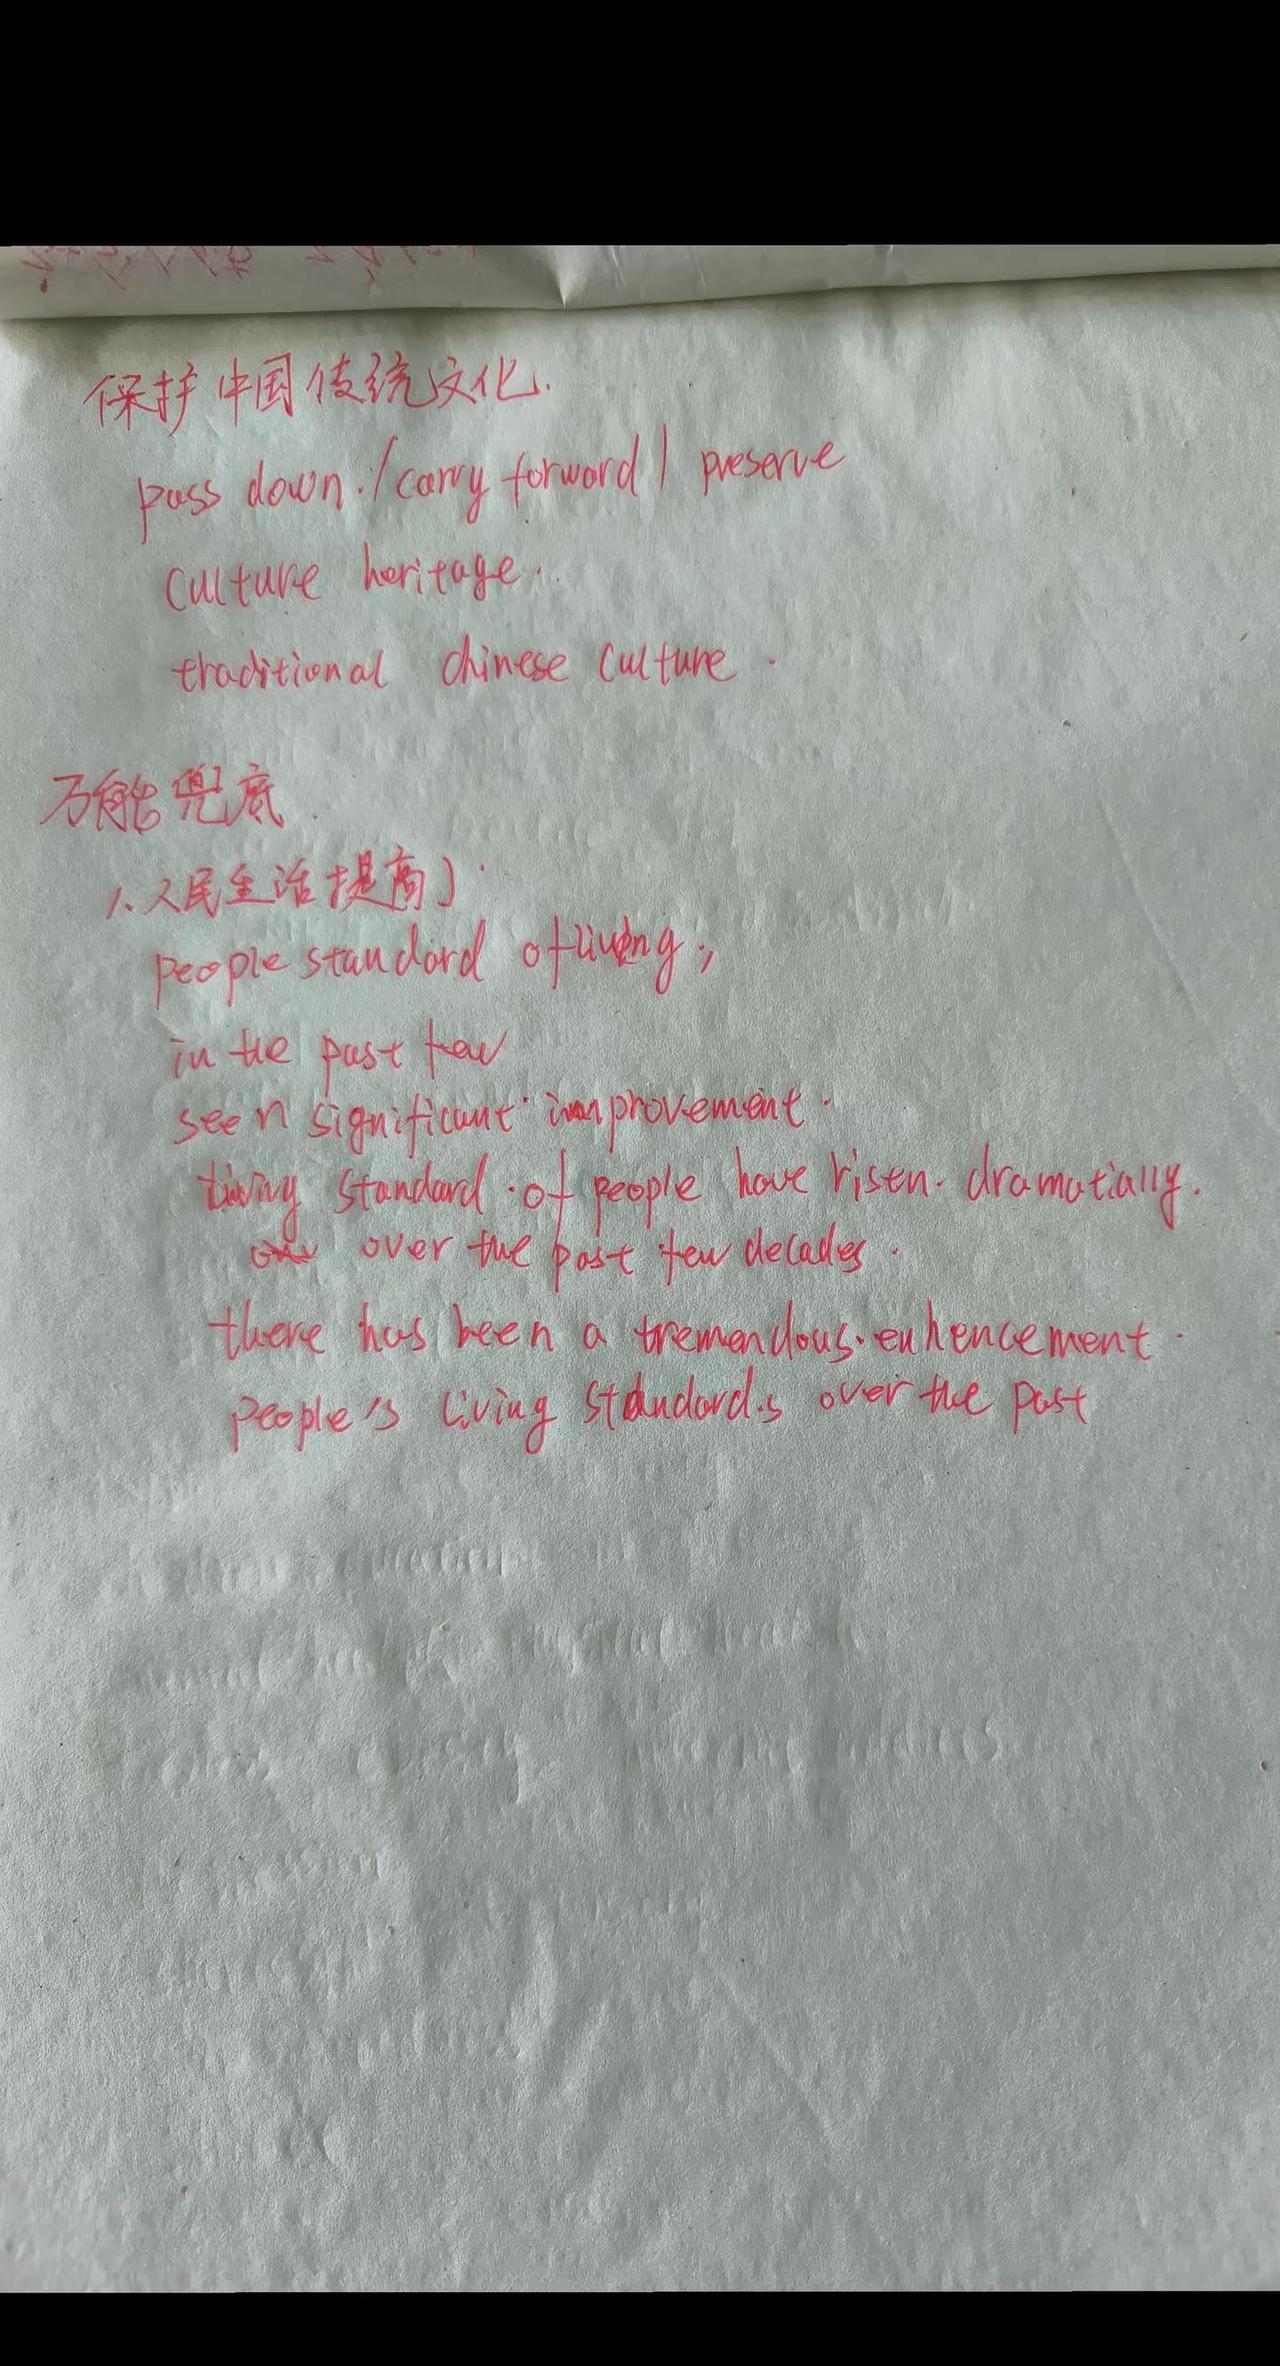 保护中国传统文化.
pass down./carry forward/preserve
culture heritage..
traditional chinese culture.
万能兜底.
1.人民生活提高)
people standard of living,
in the past few
seen significant improvement.
Living standard of people have risen. dramatially.
over the past few decades.
there has been a tremendous. enhencement.
people's living standards over the past